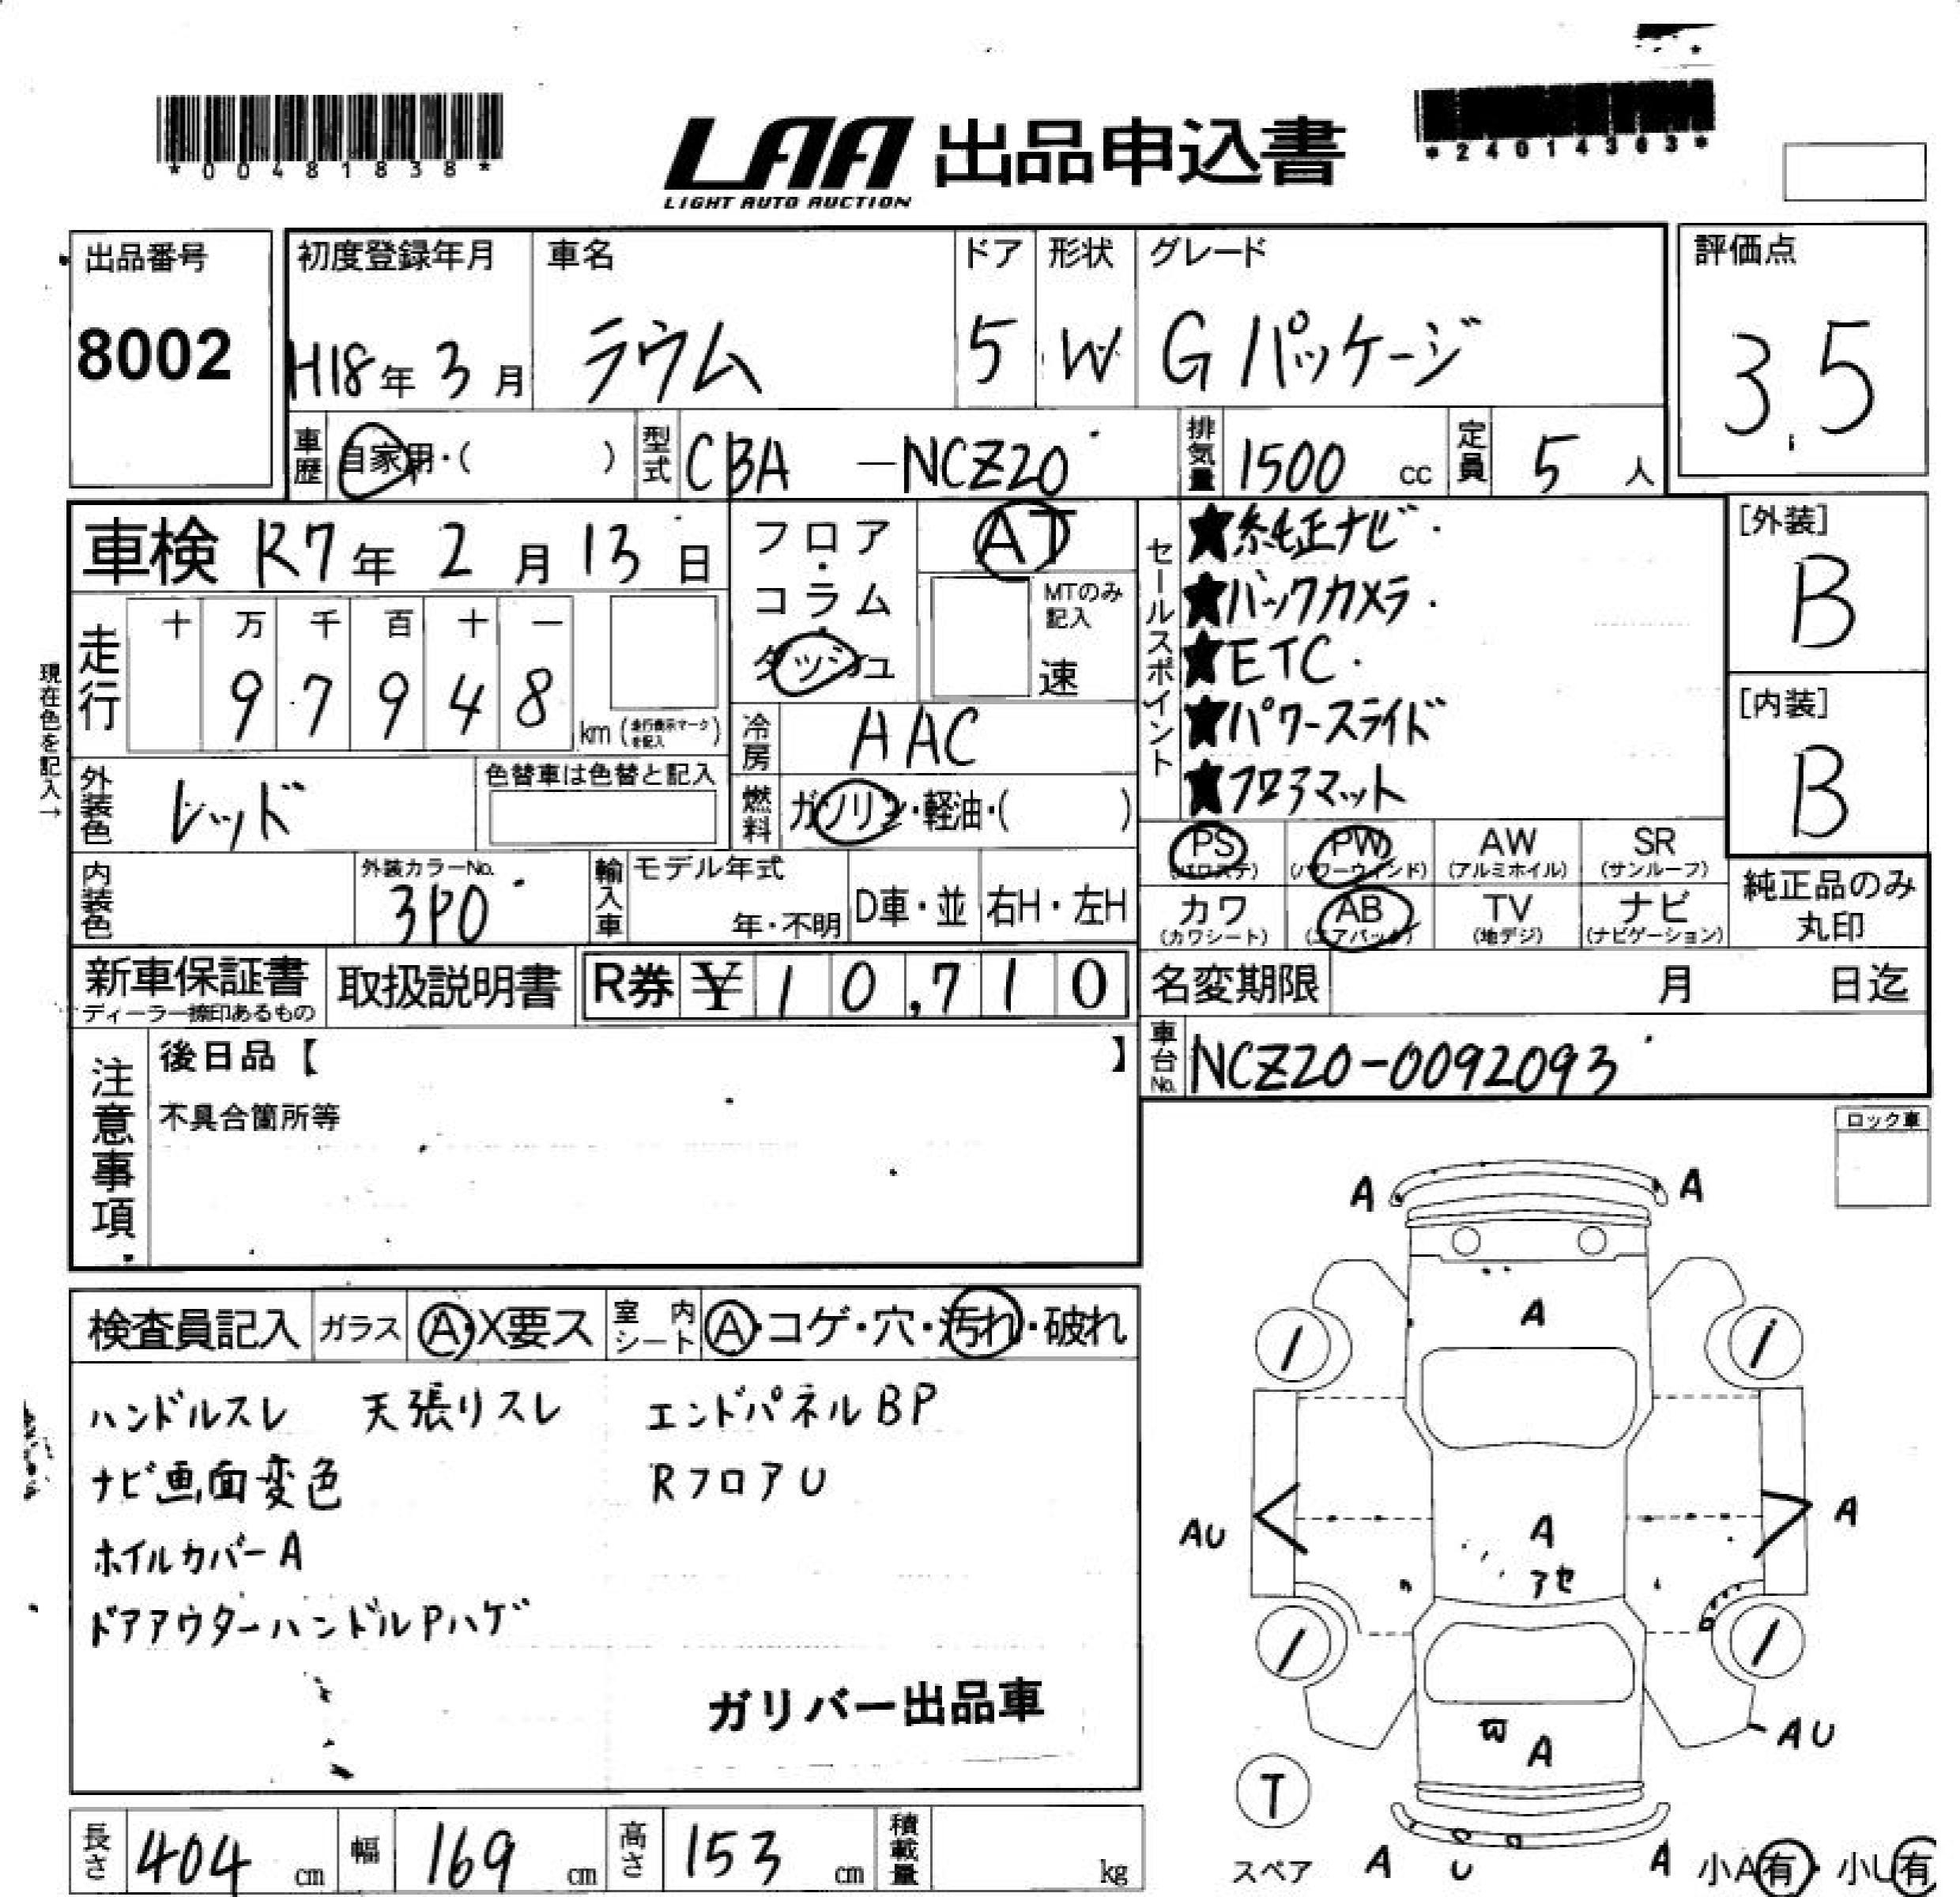 *00481838*
LAA 出品申込書
LIGHT AUTO AUCTION
*24014363*
出品番号
8002
初度登録年月
H18年 3月
車名
ラウム
ドア
5
形状
W
グレード
Gパッケージ
評価点
3.5
車歴 自家用・( )
型式 CBA -NCZ20
排気量 1500 cc
定員 5 人
車検 R7年 2月 13日
フロア・コラム・ダッシュ
AT
MTのみ記入
速
セールスポイント
★純正ナビ
★バックカメラ
★ETC
★パワースライド
★フロアマット
[外装]
B
[内装]
B
現在色を記入→
走行
十 万 千 百 十 一
9 7 9 4 8
km (走行表示マークを記入)
冷房 AAC
外装色 レッド
色替車は色替と記入
燃料 ガソリン・軽油・( )
PS (パワステ)
PW (パワーウィンド)
AW (アルミホイル)
SR (サンルーフ)
カワ (カワシート)
AB (エアバック)
TV (地デジ)
ナビ (ナビゲーション)
純正品のみ丸印
内装色
外装カラーNo.
3P0
輸入車
モデル年式
年・不明
D車・並
右H・左H
新車保証書
ディーラー捺印あるもの
取扱説明書
R券 ¥ 10,710
名変期限 月 日迄
車台No. NCZ20-0092093
注意事項
後日品【 】
不具合箇所等
ロック車
検査員記入
ガラス A・X要ス
室内シート A・コゲ・穴・汚れ・破れ
ハンドルスレ 天張りスレ エンドパネルBP
ナビ画面変色 RフロアU
ホイルカバーA
ドアアウターハンドルPハゲ
ガリバー出品車
A
A
A
AU
A
A
アセ
AU
A
T
スペア
A
U
A
小A有・小U有
長さ 404 cm
幅 169 cm
高さ 153 cm
積載量 kg